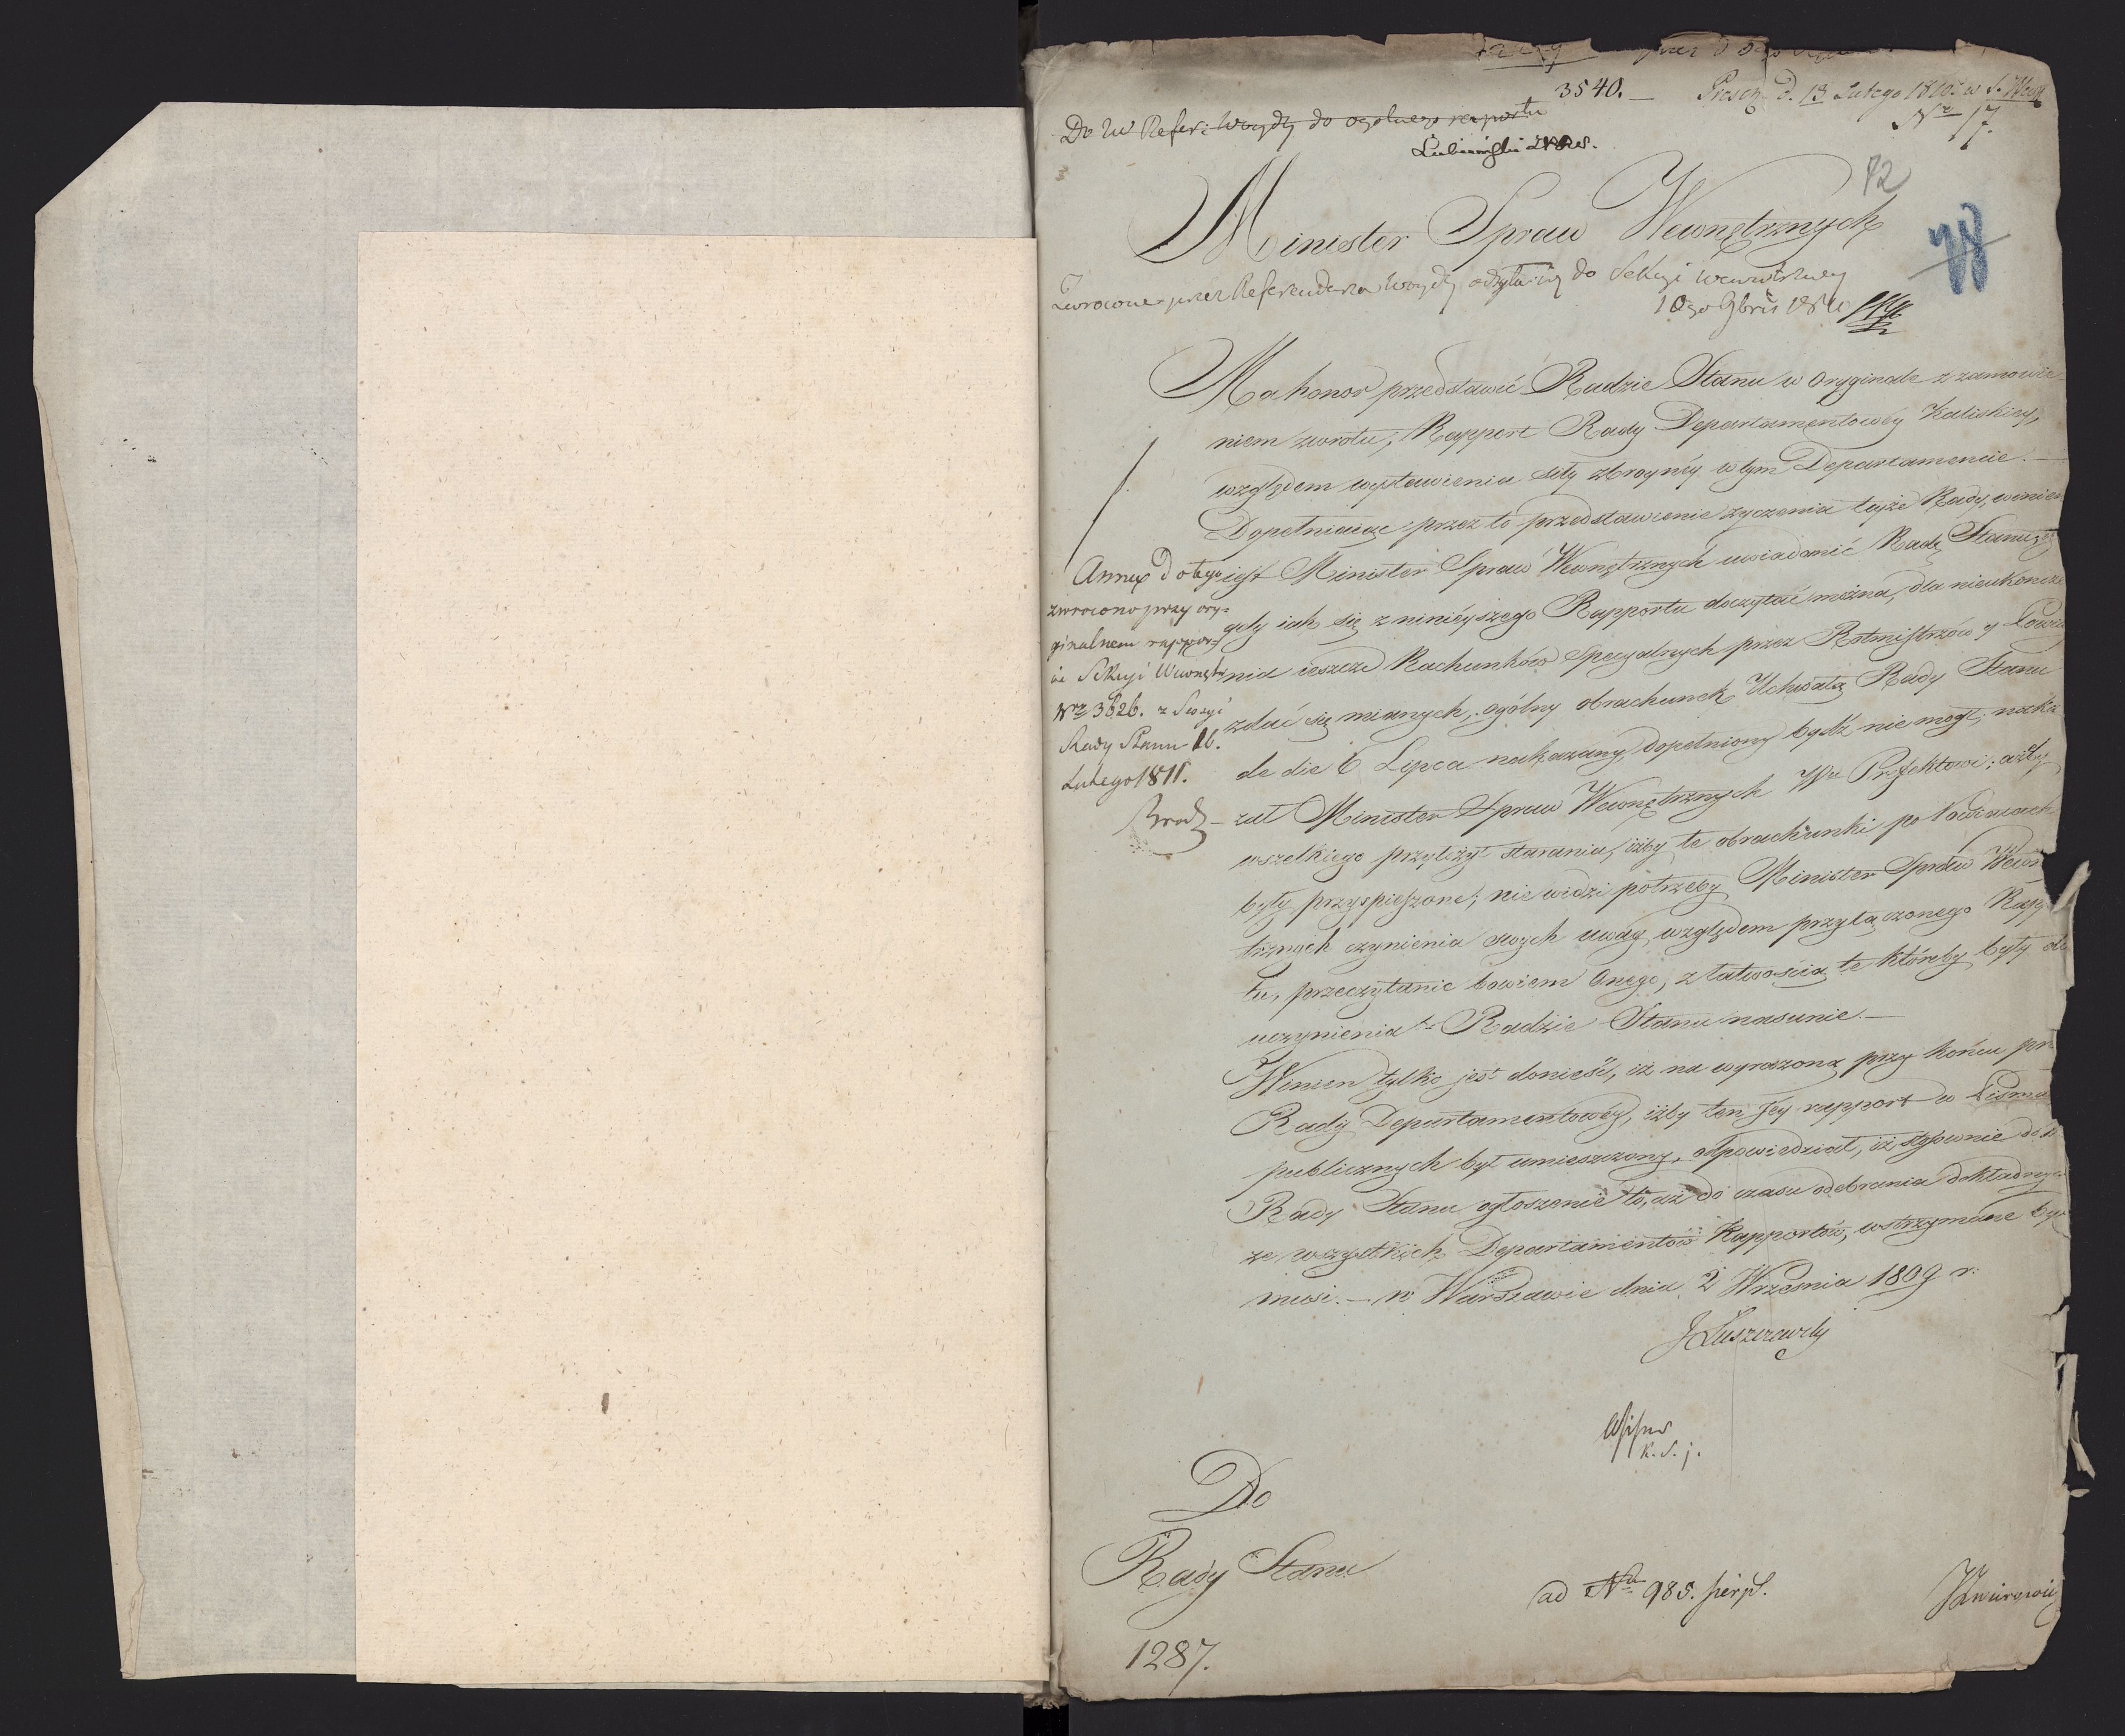 3540. — Presen. d. 13 Lutego 1810. w S. Wew
Nro 17.
Do JW Refer: Woydy do ogolnego raportu
Lubieński
72
78
Minister Spraw Wewnętrznych
Zwrocone przez Referendarza Woydę odsyła się do Sekcyi wewnętrzney
10go 9bris 1810
Ma honor przedstawić Radzie Stanu w Oryginale z zamowie-
niem zwrotu, Rapport Rady Departamentowéy Kaliskiey,
względem wystawienia siły zbroynéy w tym Departamencie. —
Dopełniaiąc przez to przedstawienie życzenia tayże Rady, winien
iest Minister Spraw Wewnętrznych uwiadomić Radę Stanu, że
gdy iak się z ninieyszego Rapportu doczytać można, dla nieukończe
nia ieszcze Rachunków specyalnych przez Rotmistrzów y Powia
zdać się mianych, ogólny obrachunek Uchwałą Rady Stanu
de die 6 Lipca nakazany, dopełniony bydź nie mógł; naka
zał Minister Spraw Wewnętrznych JWu Prefektowi; ażeby
wszelkiego przyłożył starania, iżby te obrachunki po Powiatach
były przyspieszone; nie widzi potrzeby Minister Spraw Wewn
trznych czynienia swych uwag względem przyłączonego Rapp
tu, przeczytanie bowiem Onego, z łatwością te któreby były do
uczynienia Radzie Stanu nasunie. —
Winien tylko jest donieść, iż na wyrażoną przy końcu pro
Rady Departamentowéy, iżby ten Jey rapport w Pisma
publicznych był umieszczony, odpowiedział, iż stosownie do
Rady Stanu ogłoszenie to, aż do czasu odebrania dokładnych
ze wszystkich Departamentów Rapportów, wstrzymane być
musi. — w Warszawie dnia 2 Września 1809 r.
J Łuszczewski
Annex do tego
zwrocono przy ory-
ginalnem rappor
ie Sekcyi Wewnętr
Nro 3626. z Sessyi
Rady Stanu 16.
Lutego 1811.
Brodz
K. S. j.
Do
Rady Stanu
ad Nru 985. sierp.
1287.